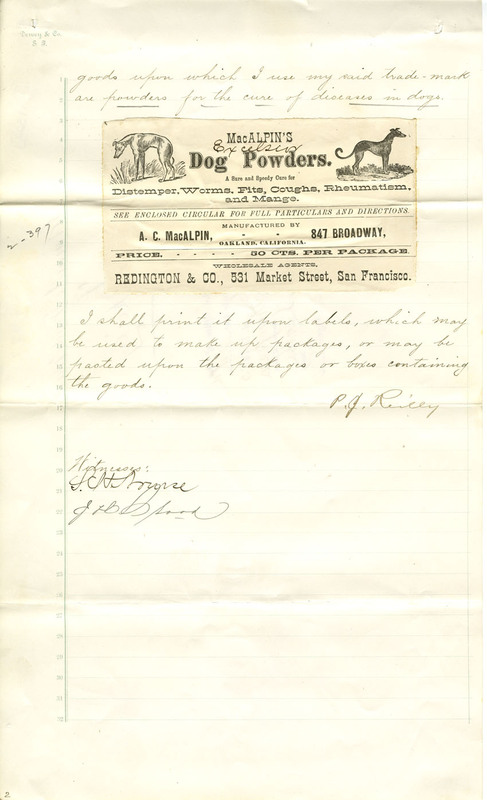 Dewey & Co.
S. F.
goods upon which I use my said trade-mark
are powders for the cure of diseases in dogs.
MacALPIN'S
Excelsior
Dog Powders.
A Sure and Speedy Cure for
Distemper, Worms, Fits, Coughs, Rheumatism,
and Mange.
SEE ENCLOSED CIRCULAR FOR FULL PARTICULARS AND DIRECTIONS.
MANUFACTURED BY
A. C. MacALPIN, - - 847 BROADWAY,
OAKLAND, CALIFORNIA.
PRICE. - - - - - 50 CTS. PER PACKAGE.
WHOLESALE AGENTS,
REDINGTON & CO., 531 Market Street, San Francisco.
2-397
I shall print it upon labels, which may
be used to make up packages, or may be
pasted upon the packages or boxes containing
the goods.
P. J. Reilly
Witnesses:
2